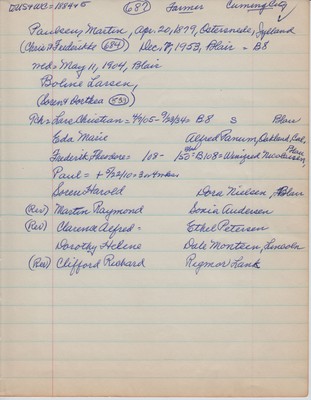 687 Farmer Cuming City
Paulsen, Martin, Apr. 20, 1879, Ostersnede, Jylland
(Chris & Fredrikke 684) Dec. 8, 1953, Blair = B8
md = May 11, 1904, Blair
Boline Larsen,
(Soren & Dorthea 533)
Ch = Lars Christian = 4405- B8 S Blair
Eda Marie Alfred Panum, Oakland, Cal.
Frederik Theodore = 108- Winifred
Paul = + 9/22/10 = 3 or 4 mos
Soren Harold Dora Nielsen, Blair
(Rev) Martin Raymond Sonia Andersen
(Rev) Clarence Alfred = Ethel Petersen
Dorothy Helene Dale Monteen, Lincoln
(Rev) Clifford Richard Rigmor Lank